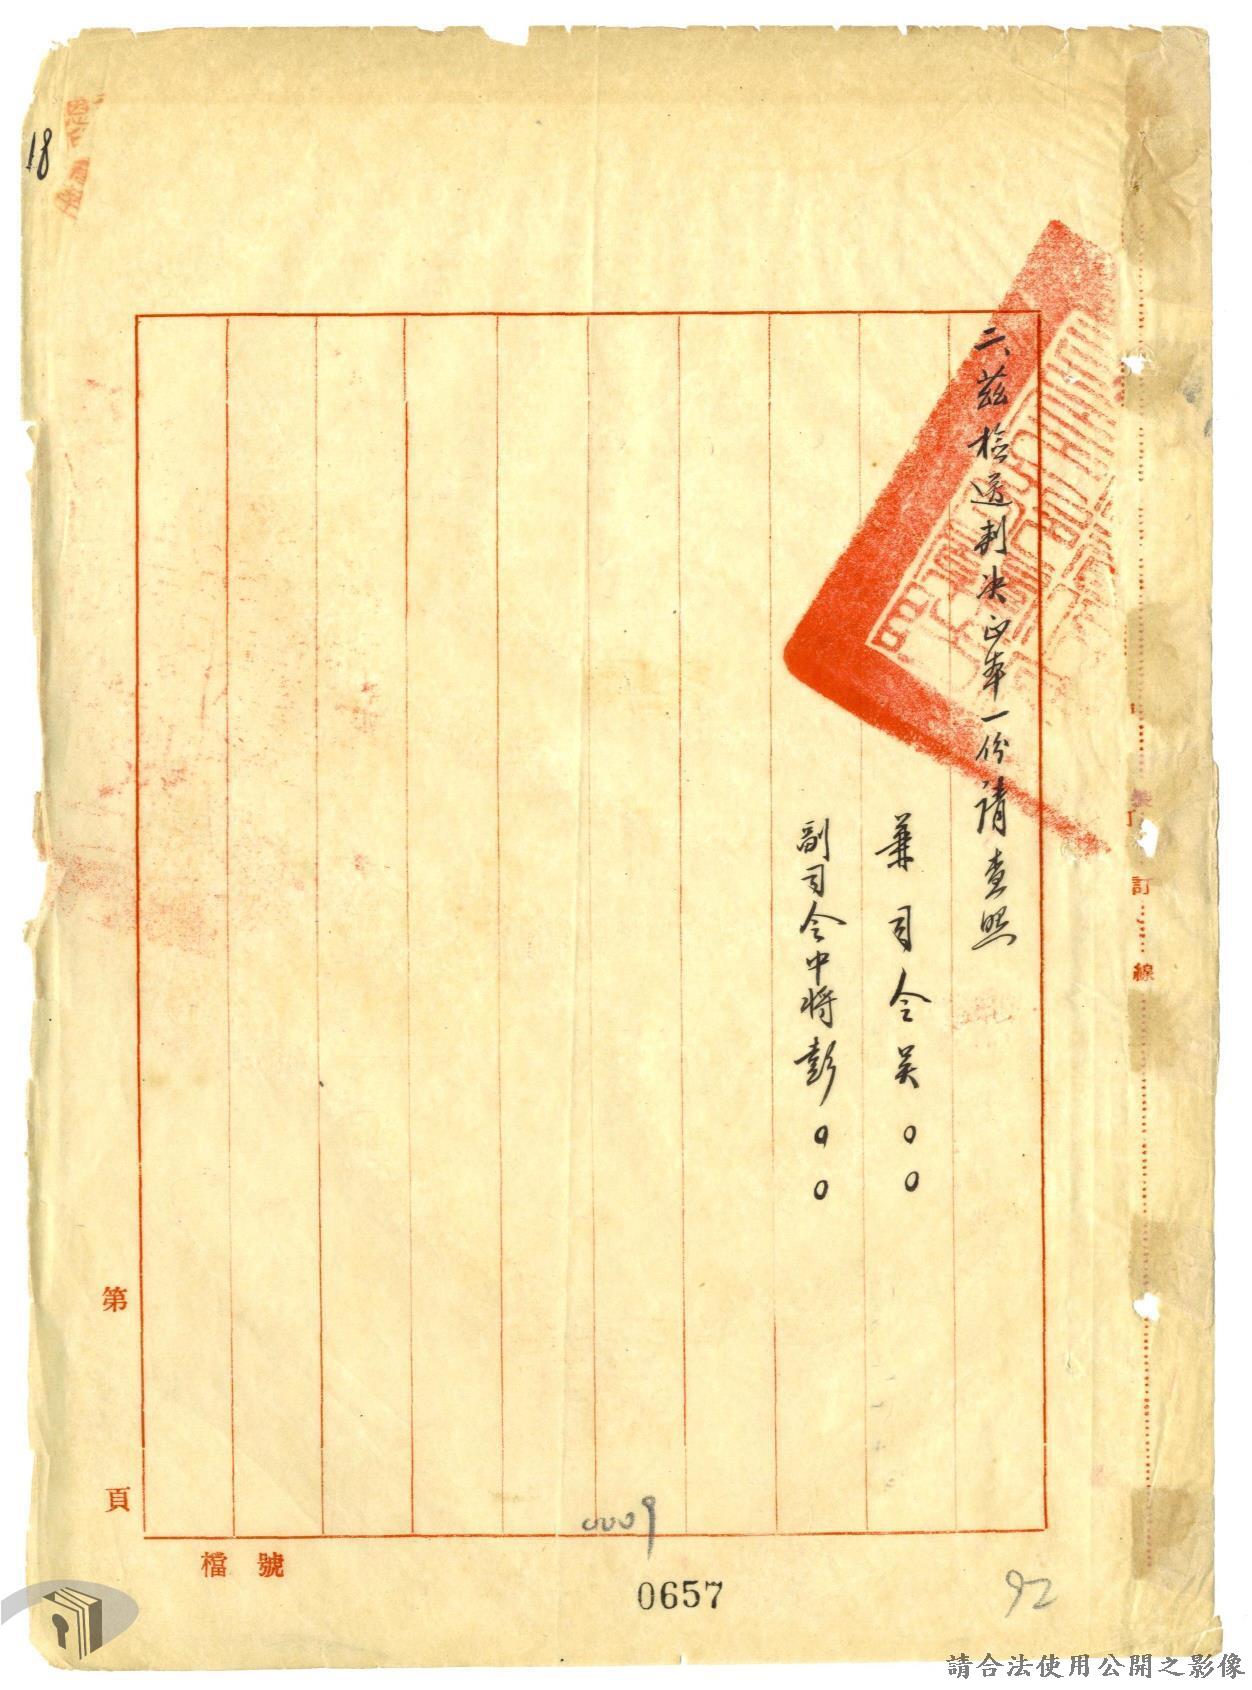 二、茲檢送判決正本一份請查照
兼司令吳○○
副司令中將彭○○
訂
線
18
第
頁
檔號
0009
0657
92
請合法使用公開之影像